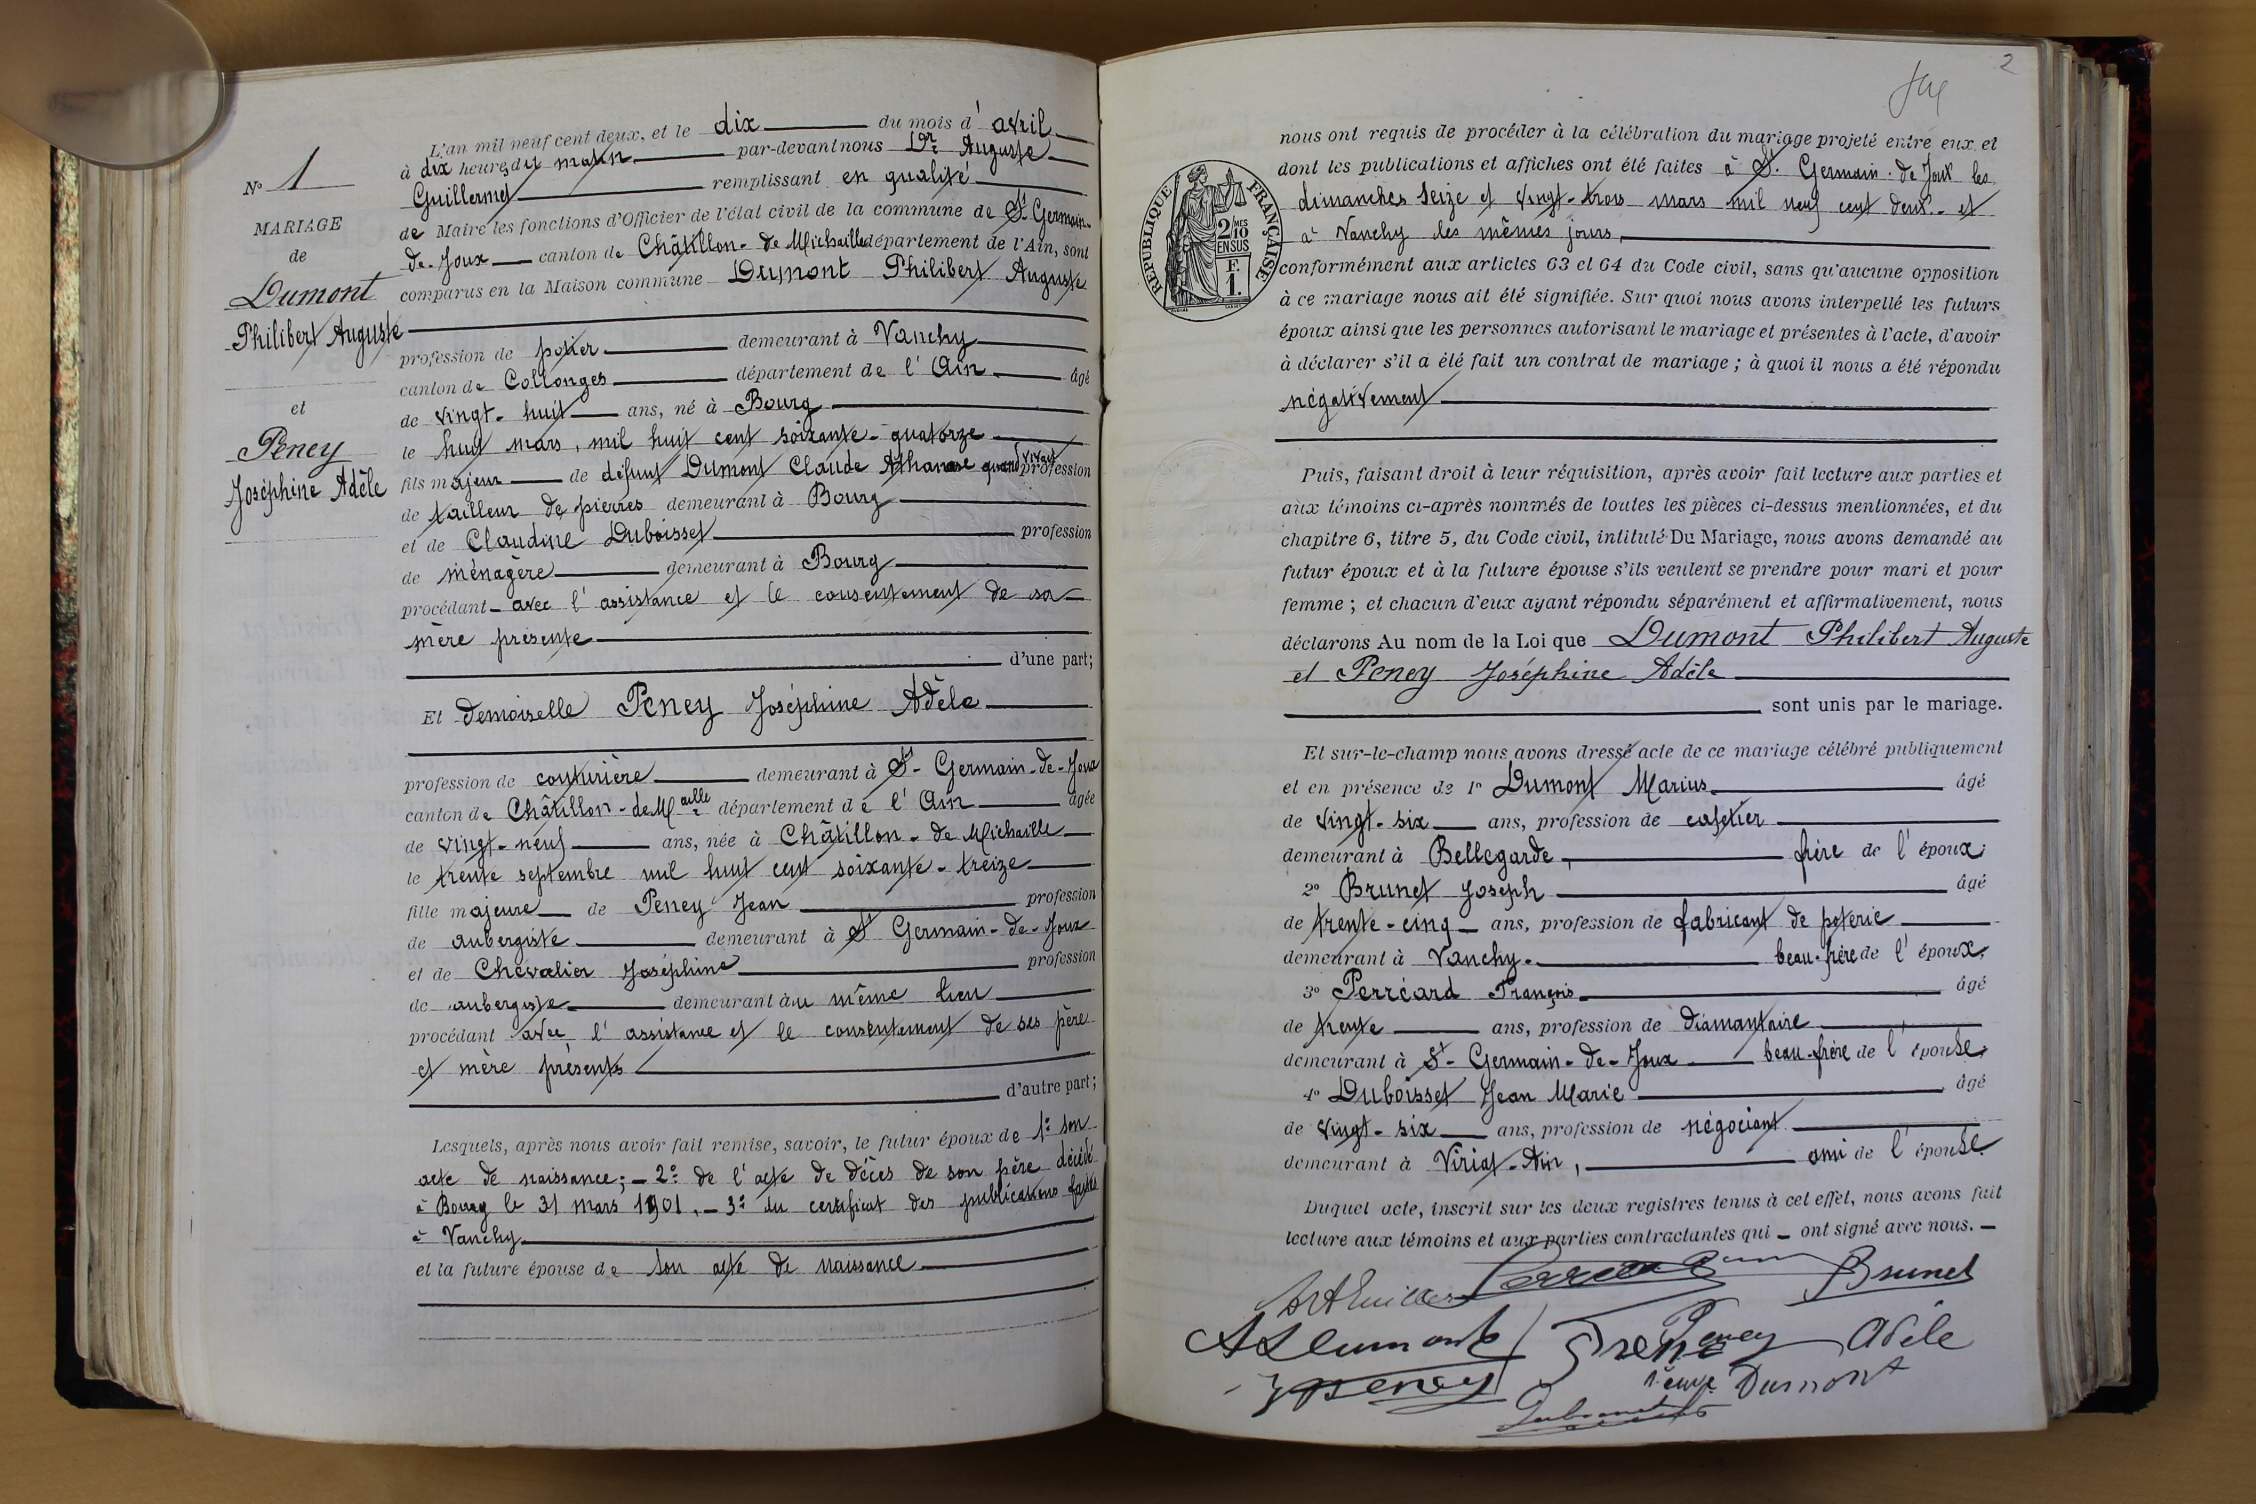 N° 1
MARIAGE
de
Dumont
Philibert Auguste
et
Peney
Joséphine Adèle
L'an mil neuf cent deux, et le dix du mois d' avril
à dix heures du matin par-devant nous Dr Auguste
Guillermet remplissant en qualité
de Maire les fonctions d'Officier de l'état civil de la commune de St Germain-
de-Joux canton de Châtillon-de-Michaille département de l'Ain, sont
comparus en la Maison commune Dumont Philibert Auguste
profession de potier demeurant à Vanchy
canton de Collonges département de l'Ain. âgé
de vingt-huit ans, né à Bourg
le huit mars, mil huit cent soixante-quatorze
fils majeur de défunt Dumont Claude Athanase quand vivait profession
de tailleur de pierres demeurant à Bourg
et de Claudine Duboisset profession
de ménagère demeurant à Bourg
procédant avec l'assistance et le consentement de sa
mère présente
d'une part;
Et demoiselle Peney Joséphine Adèle
profession de couturière demeurant à St-Germain-de-Joux
canton de Châtillon-de Maille département de l'Ain âgée
de vingt-neuf ans, née à Châtillon-de Michaille
le trente septembre mil huit cent soixante-treize
fille majeure de Peney Jean profession
de aubergiste demeurant à St Germain-de-Joux
et de Chevalier Joséphine profession
de aubergiste demeurant au même lieu
procédant avec l'assistance et le consentement de ses père
et mère présents
d'autre part;
Lesquels, après nous avoir fait remise, savoir, le futur époux de 1° son
acte de naissance; - 2° de l'acte de décès de son père décédé
à Bourg le 31 mars 1901. - 3° du certificat des publications faites
à Vanchy
et la future épouse de son acte de naissance
2
nous ont requis de procéder à la célébration du mariage projeté entre eux et
dont les publications et affiches ont été faites à St. Germain-de Joux les
dimanches seize et vingt-trois mars mil neuf cent deux. et
à Vanchy les mêmes jours
RÉPUBLIQUE FRANÇAISE
2/10 MES
EN SUS
F.
1.
conformément aux articles 63 et 64 du Code civil, sans qu'aucune opposition
à ce mariage nous ait été signifiée. Sur quoi nous avons interpellé les futurs
époux ainsi que les personnes autorisant le mariage et présentes à l'acte, d'avoir
à déclarer s'il a été fait un contrat de mariage; à quoi il nous a été répondu
négativement
Puis, faisant droit à leur réquisition, après avoir fait lecture aux parties et
aux témoins ci-après nommés de toutes les pièces ci-dessus mentionnées, et du
chapitre 6, titre 5, du Code civil, intitulé Du Mariage, nous avons demandé au
futur époux et à la future épouse s'ils veulent se prendre pour mari et pour
femme; et chacun d'eux ayant répondu séparément et affirmativement, nous
déclarons Au nom de la Loi que Dumont Philibert Auguste
et Peney Joséphine Adèle
sont unis par le mariage.
Et sur-le-champ nous avons dressé acte de ce mariage célébré publiquement
et en présence de 1° Dumont Marius âgé
de vingt-six ans, profession de cafetier
demeurant à Bellegarde, frère de l'époux;
2° Brunet Joseph âgé
de trente-cinq ans, profession de fabricant de poterie
demeurant à Vanchy. beau-frère de l'époux;
3° Perréard François âgé
de trente ans, profession de diamantaire
demeurant à St-Germain-de-Joux beau-frère de l'épouse;
4° Duboisset Jean Marie âgé
de vingt-six ans, profession de négociant
demeurant à Viriat-Ain, ami de l'épouse
Duquel acte, inscrit sur les deux registres tenus à cet effet, nous avons fait
lecture aux témoins et aux parties contractantes qui ont signé avec nous.
Brunet
A Dumont Peney Adèle
Peney veuve Dumont